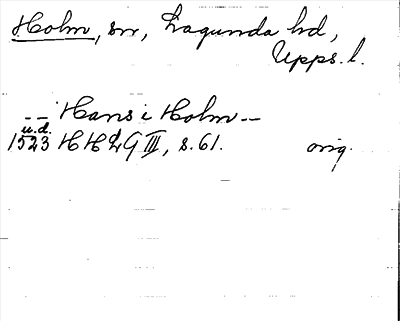 Holm, sn, Lagunda hd,
Upps. l.
-- Hans i Holm --
u.d.
1523 HHLG III, s. 61. orig.